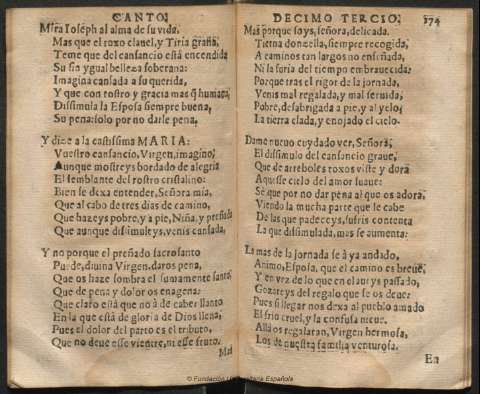 CANTO.
Mira Ioseph al alma de su vida,
Mas que el roxo clauel, y Tiria grana,
Teme que del cansancio está encendida
Su sin ygual belleza soberana:
Imagina cansada a su querida,
Y que con rostro y gracia mas q̃ humana,
Dissimula la Esposa siempre buena,
Su pena: solo por no darle pena.
Y dize a la castissima MARIA:
Vuestro cansancio, Virgen, imagino,
Aunque mostreys bordado de alegria
El semblante del rostro cristalino:
Bien se dexa entender, Señora mia,
Que al cabo de tres dias de camino,
Que hazeys pobre, y a pie, Niña, y preñada
Que aunque dissimuleys, venis cansada,
Y no porque el preñado sacrosanto
Puede, diuina Virgen, daros pena,
Que os haze sombra el sumamente santo,
Que de pena y dolor os enagena:
Que claro está que no à de caber llanto
En la que está de gloria de Dios llena,
Pues el dolor del parto es el tributo,
Que no deue esse vientre, ni esse fruto.
Mas
DECIMO TERCIO. 174
Mas porque soys, señora, delicada,
Tierna donzella, siempre recogida,
A caminos tan largos no enseñada,
Ni la furia del tiempo embrauecida:
Porque tras el rigor de la jornada,
Venis mal regalada, y mal seruida,
Pobre, desabrigada a pie, y al yelo,
La tierra elada, y enojado el cielo.
Dame nueuo cuydado ver, Señora,
El dissimulo del cansancio graue,
Que de arreboles roxos viste y dora
Aquesse cielo del amor suaue:
Sè que por no dar pena al que os adora,
Viendo la mucha parte que le cabe
De las que padeceys, sufris contenta
La que dissimulada, mas se aumenta:
La mas de la jornada se à ya andado,
Animo, Esposa, que el camino es breue,
Y en vez de lo que en el aureys passado,
Gozareys del regalo que se os deue:
Pues si llegar nos dexa al pueblo amado
El frio cruel, y la confusa nieue.
Alla os regalaran, Virgen hermosa,
Los de nuestra familia venturosa.
En
© Fundación Universitaria Española